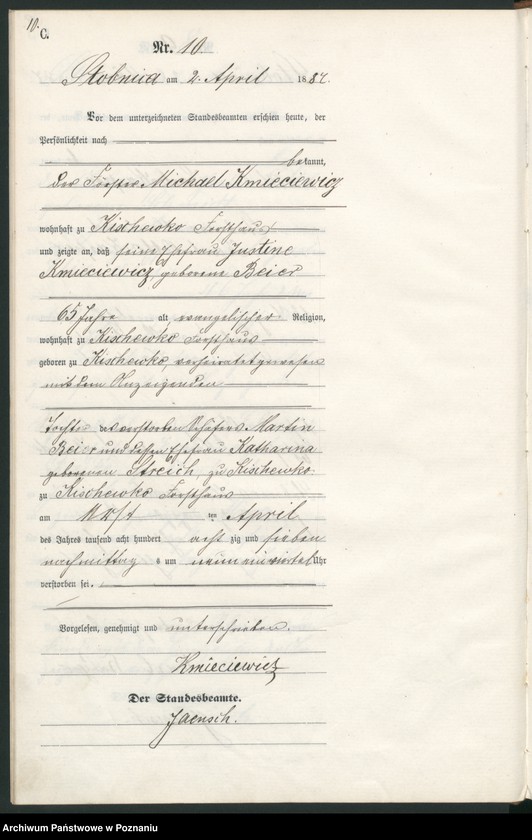 10.
C.
Nr. 10.
Stobnica am 2. April 1887.
Vor dem unterzeichneten Standesbeamten erschien heute, der
Persönlichkeit nach
bekannt,
der Förster Michael Kmieciewicz
wohnhaft zu Kischewko Forsthaus
und zeigte an, daß seine Ehefrau Justine
Kmieciewicz geborene Beier
65 Jahre alt, evangelischer Religion,
wohnhaft zu Kischewko Forsthaus
geboren zu Kischewko, verheiratet gewesen
mit dem Anzeigenden
Tochter des verstorben Schäfers Martin
Beier und dessen Ehefrau Katharina
geborenen Streich, zu Kischewko
zu Kischewko Forsthaus
am ten April
des Jahres tausend acht hundert acht zig und sieben
nachmittag s um neun ein viertel Uhr
verstorben sei.
Vorgelesen, genehmigt und unterschrieben.
Kmieciewicz
Der Standesbeamte.
Jaensch.
Archiwum Państwowe w Poznaniu